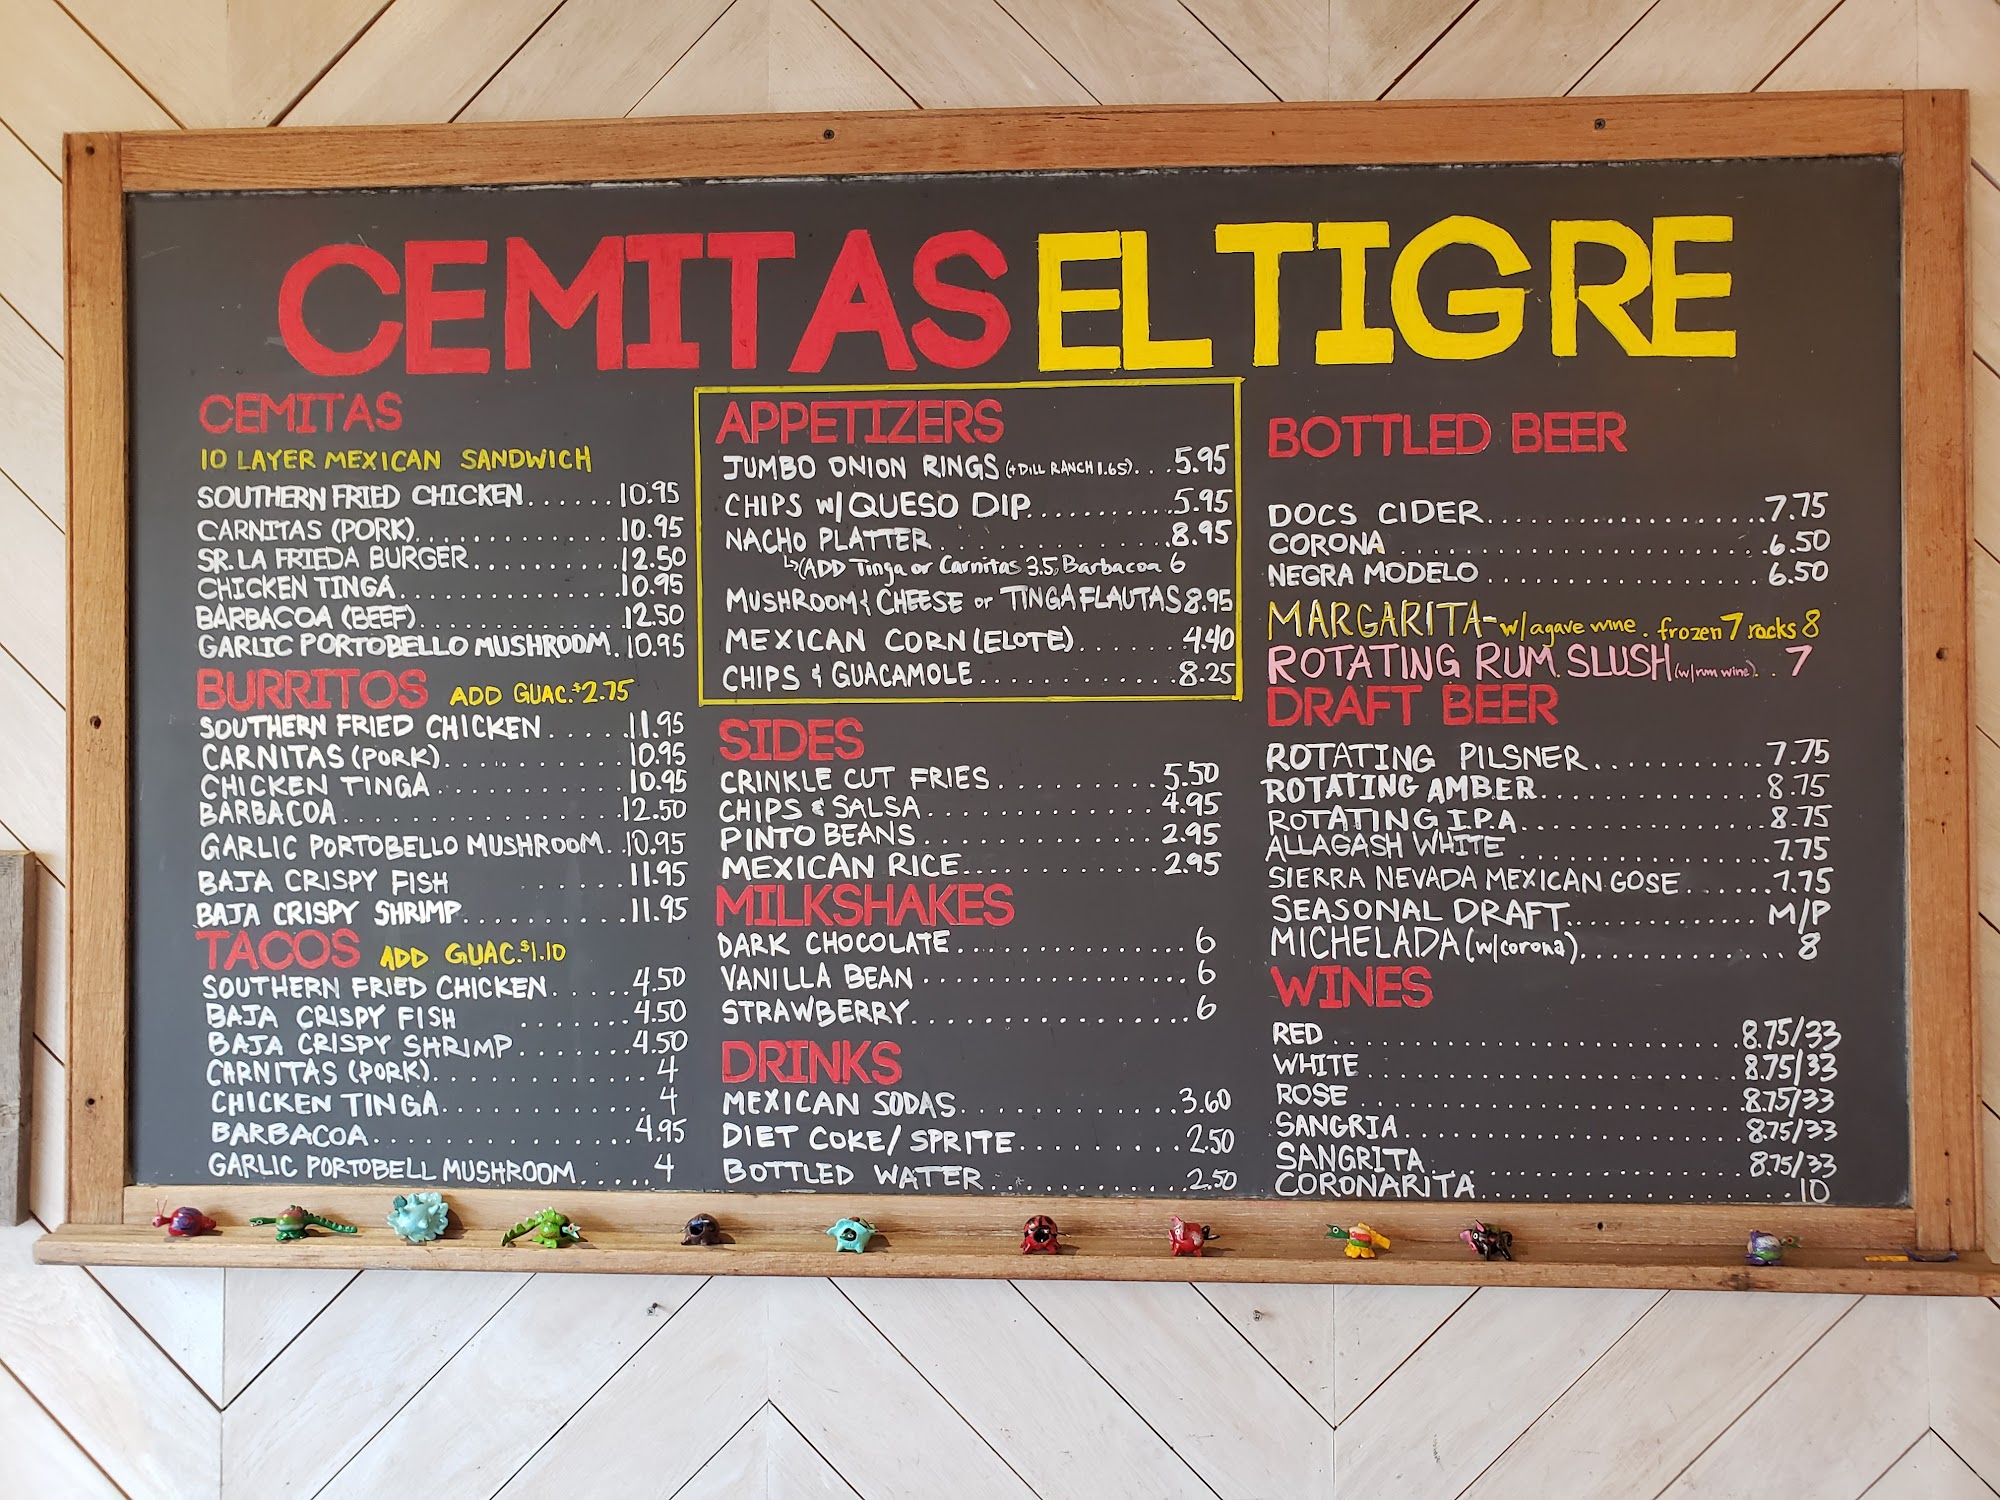 CEMITAS EL TIGRE
CEMITAS
10 LAYER MEXICAN SANDWICH
SOUTHERN FRIED CHICKEN......10.95
CARNITAS (PORK)..............10.95
SR. LA FRIEDA BURGER..........12.50
CHICKEN TINGA...............10.95
BARBACOA (BEEF)..............12.50
GARLIC PORTOBELLO MUSHROOM.10.95
BURRITOS ADD GUAC. $2.75
SOUTHERN FRIED CHICKEN.....11.95
CARNITAS (PORK)............10.95
CHICKEN TINGA.............10.95
BARBACOA..................12.50
GARLIC PORTOBELLO MUSHROOM..10.95
BAJA CRISPY FISH ......11.95
BAJA CRISPY SHRIMP.........11.95
TACOS ADD GUAC. $1.10
SOUTHERN FRIED CHICKEN.....4.50
BAJA CRISPY FISH .......4.50
BAJA CRISPY SHRIMP.......4.50
CARNITAS (PORK)............4
CHICKEN TINGA............4
BARBACOA................4.95
GARLIC PORTOBELL MUSHROOM.....4
APPETIZERS
JUMBO ONION RINGS (+DILL RANCH 1.65)...5.95
CHIPS w/ QUESO DIP...........5.95
NACHO PLATTER ..............8.95
↳(ADD Tinga or Carnitas 3.5, Barbacoa 6
MUSHROOM & CHEESE or TINGA FLAUTAS 8.95
MEXICAN CORN (ELOTE).......4.40
CHIPS & GUACAMOLE............8.25
SIDES
CRINKLE CUT FRIES..........5.50
CHIPS & SALSA..............4.95
PINTO BEANS...............2.95
MEXICAN RICE.............2.95
MILKSHAKES
DARK CHOCOLATE..............6
VANILLA BEAN................6
STRAWBERRY.................6
DRINKS
MEXICAN SODAS.............3.60
DIET COKE/SPRITE..........2.50
BOTTLED WATER.............2.50
BOTTLED BEER
DOCS CIDER..................7.75
CORONA.......................6.50
NEGRA MODELO.................6.50
MARGARITA- w/ agave wine. frozen 7 rocks 8
ROTATING RUM SLUSH (w/ rum wine)..7
DRAFT BEER
ROTATING PILSNER...........7.75
ROTATING AMBER..............8.75
ROTATING I.P.A................8.75
ALLAGASH WHITE..............7.75
SIERRA NEVADA MEXICAN GOSE......7.75
SEASONAL DRAFT............M/P
MICHELADA (w/corona).............8
WINES
RED.........................8.75/33
WHITE.......................8.75/33
ROSE........................8.75/33
SANGRIA.....................8.75/33
SANGRITA....................8.75/33
CORONARITA....................10